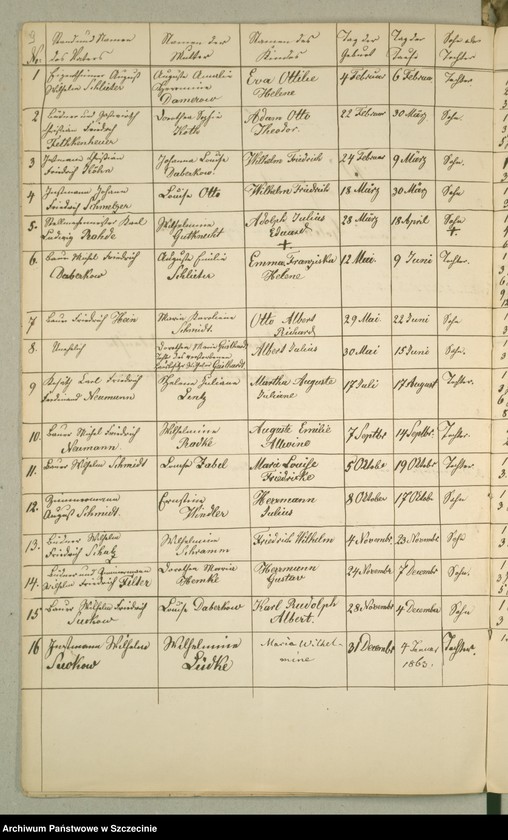 No. Stand und Namen des Vaters Namen der Mutter Namen des Kindes Tag der Geburt Tag der Taufe Sohn oder Tochter
1 Eigenthümer August Wilhelm Schlüter
Auguste Amalie Hermine Damerow
Eva Ottilie Helene
4 Februar 6 Februar Tochter.
2 Christian Friedrich
Dorothea Sophie
Adam Otto Theodor.
22 Februar 30 März Sohn.
3 Christian Friedrich
Johanna Louise Daberkow.
Wilhelm Friedrich
24 Februar 9 März Sohn.
4 Johann Friedrich Schmelzer
Louise Otto
Wilhelm Friedrich
18 März 30 März Sohn
5. Karl Ludwig Rohde
Wilhelmine Gutknecht
Adolph Julius Eduard +
28 März 18 April Sohn +.
6. Bauer Michel Friedrich Daberkow
Auguste Emilie Schlüter
Emma Franziska Helene
12 Mai 9 Juni Tochter.
7 Bauer Friedrich Hein
Maria Karoline Schmidt.
Otto Albert Richard
29 Mai 22 Juni Sohn
8. Unehlich
Dorothea Marie
Albert Julius
30 Mai 15 Juni Sohn.
9 Carl Friedrich Ferdinand Neumann
Juliane Lentz
Martha Auguste Juliane
17 Juli 17 August Tochter.
10. Bauer Michel Friedrich Neumann.
Wilhelmine Radke
Auguste Emilie Alwine
7 Septbr 14 Septbr. Tochter.
11. Bauer Wilhelm Schmidt
Louise Zabel
Marie Louise Friedricke
5 Oktober 19 Oktobr Tochter
12. Zimmermann August Schmidt.
Ernstine Windler
Herrmann Julius
8 Oktober 17 Oktobr Sohn
13. Büdner Wilhelm Friedrich Schulz
Wilhelmine Schramm
Friedrich Wilhelm
4 Novembr. 23 Novembr Sohn
14. Büdner und Zimmermann Wilhelm Friedrich
Dorothea Maria Hemke
Hermann Gustav
24 Novembr 7 Decembr Sohn.
15 Bauer Wilhelm Friedrich Suckow
Louise Daberkow
Karl Rudolph Albert.
28 Novembr 4 December Sohn
16 Wilhelm Suckow
Wilhelmine Lüdke
Maria Wilhelmine
31 Decembr 4 Januar 1863. Tochter.
Archiwum Państwowe w Szczecinie